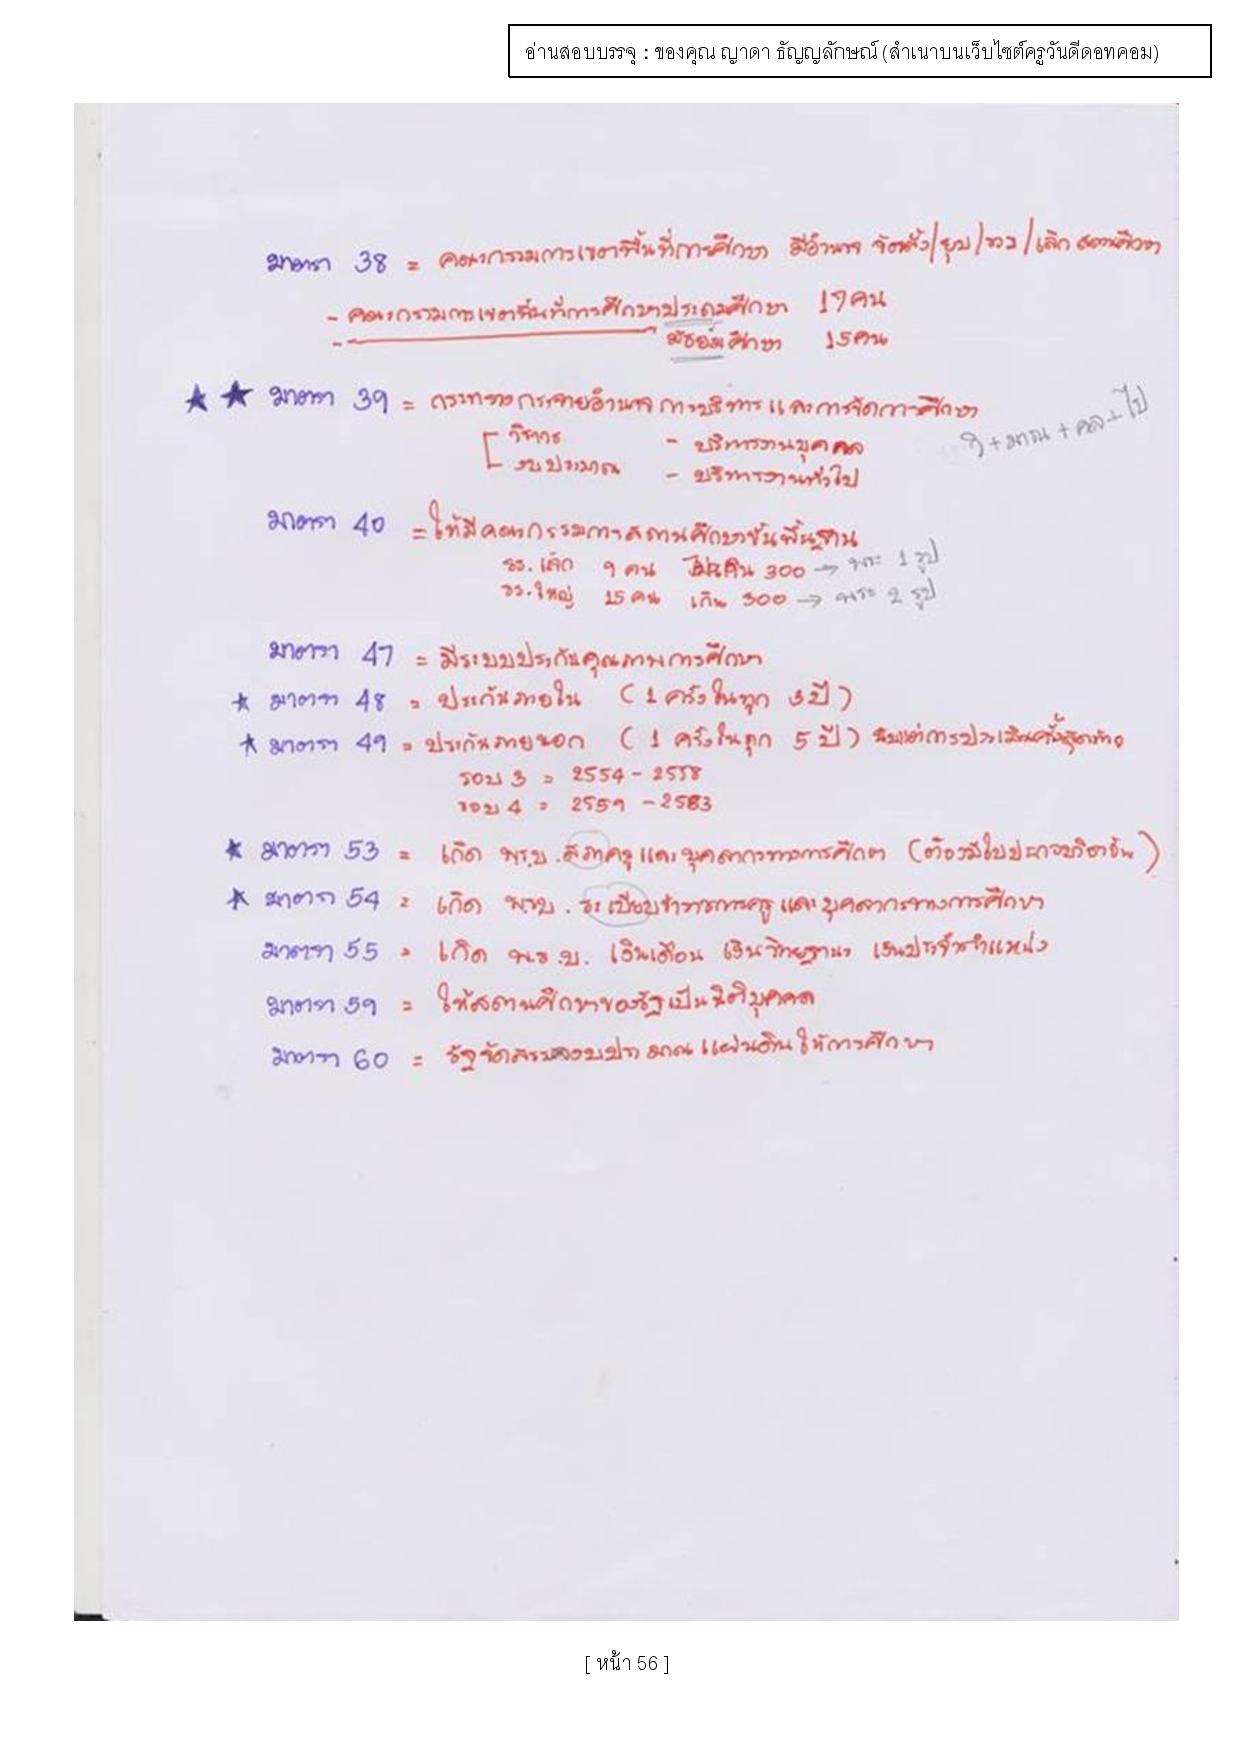 อ่านสอบบรรจุ : ของคุณ ญาดา ธัญญลักษณ์ (สำเนาบนเว็บไซต์ครูวันดีดอทคอม)
มาตรา 38 = คณะกรรมการเขตพื้นที่การศึกษา มีอำนาจ จัดตั้ง/ยุบ/รวม/เลิก สถานศึกษา
- คณะกรรมการเขตพื้นที่การศึกษาประถมศึกษา 17 คน
- มัธยมศึกษา 15 คน
★ ★ มาตรา 39 = กระทรวงกระจายอำนาจ การบริหาร และการจัดการศึกษา
วิชาการ - บริหารงานบุคคล
งบประมาณ - บริหารงานทั่วไป
วิ + มาณ + คล + ไป
มาตรา 40 = ให้มีคณะกรรมการสถานศึกษาขั้นพื้นฐาน
รร. เล็ก 9 คน ไม่เกิน 300 → พระ 1 รูป
รร. ใหญ่ 15 คน เกิน 300 → พระ 2 รูป
มาตรา 47 = มีระบบประกันคุณภาพการศึกษา
★ มาตรา 48 = ประกันภายใน (1 ครั้งในทุก 3 ปี)
★ มาตรา 49 = ประกันภายนอก (1 ครั้งในทุก 5 ปี) นับแต่การประเมินครั้งสุดท้าย
รอบ 3 = 2554 - 2558
รอบ 4 = 2559 - 2563
★ มาตรา 53 = เกิด พ.ร.บ. สภาครูและบุคลากรทางการศึกษา (ต้องมีใบประกอบวิชาชีพ)
★ มาตรา 54 = เกิด พ.ร.บ. ระเบียบข้าราชการครู และ บุคลากรทางการศึกษา
มาตรา 55 = เกิด พ.ร.บ. เงินเดือน เงินวิทยฐานะ เงินประจำตำแหน่ง
มาตรา 59 = ให้สถานศึกษาของรัฐเป็นนิติบุคคล
มาตรา 60 = รัฐจัดสรรงบประมาณแผ่นดินให้การศึกษา
[ หน้า 56 ]